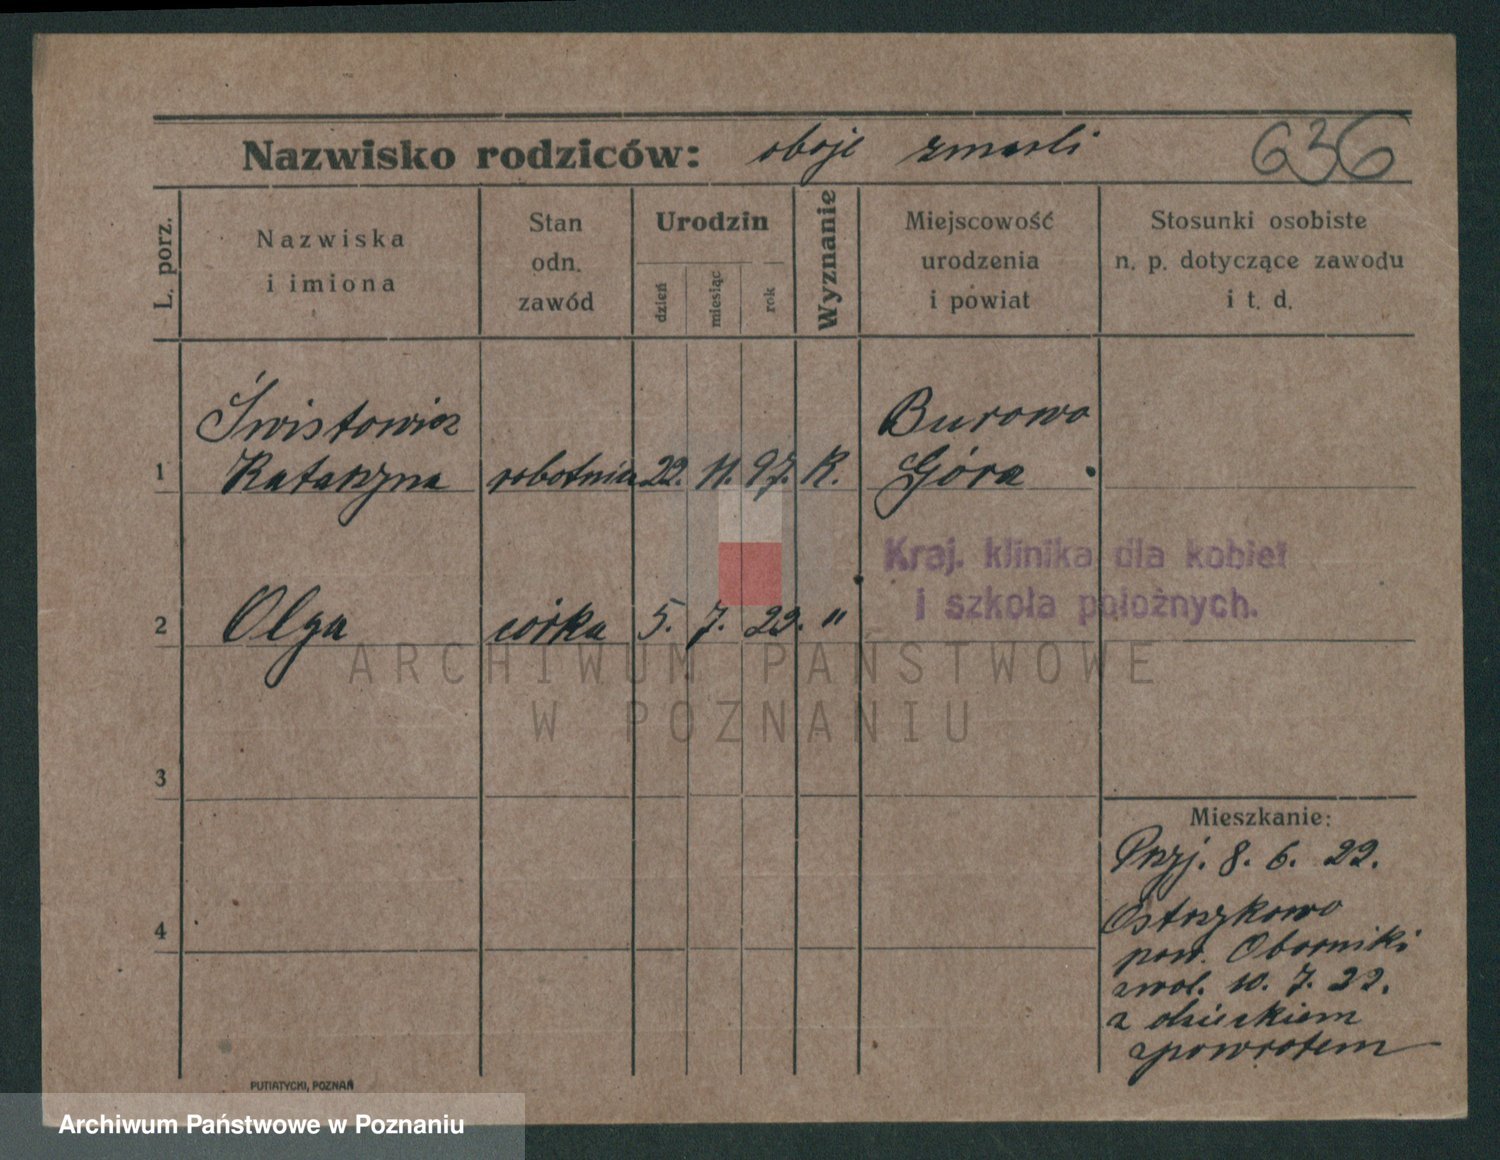 Nazwisko rodziców: oboje zmarli 636
L. porz.
Nazwiska
i imiona
Stan
odn.
zawód
Urodzin
dzień
miesiąc
rok
Wyznanie
Miejscowość
urodzenia
i powiat
Stosunki osobiste
n. p. dotyczące zawodu
i t. d.
Świstowicz
Burowo
1 Katarzyna robotnica 22. 11. 97. K. Góra
Kraj. klinika dla kobiet
i szkoła położnych.
2 Olga córka 5. 7. 22. "
ARCHIWUM PAŃSTWOWE
W POZNANIU
3
4
Mieszkanie:
Przyj. 8. 6. 22.
pow. Oborniki
zwol. 10. 7. 22.
z dzieckiem
zpowrotem
PUTIATYCKI, POZNAŃ
Archiwum Państwowe w Poznaniu